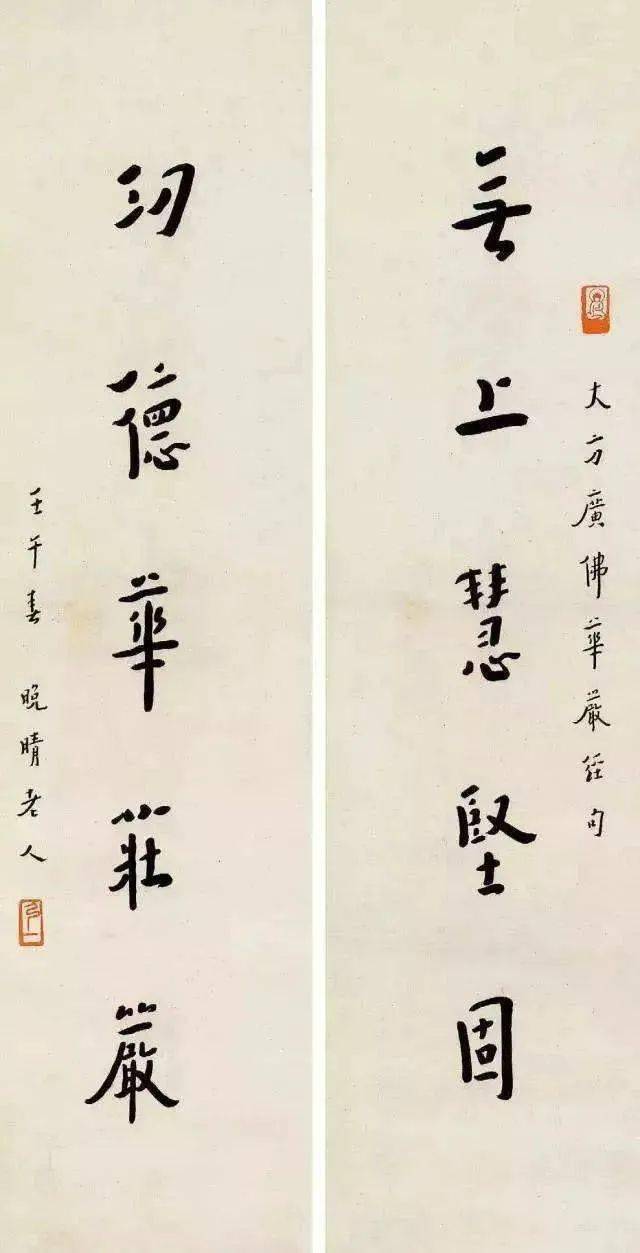 大方廣佛華嚴經句
無上慧堅固
功德華莊嚴
壬午春 晚晴老人
弘一